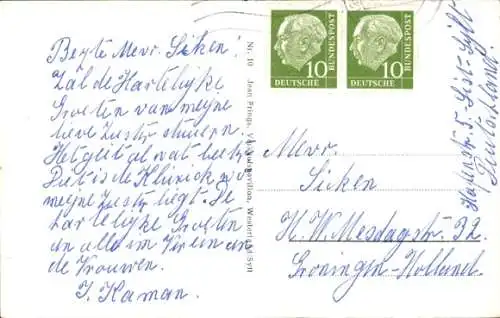 Beste Mevr. Sieken!
Zal de Hartelijke
Groeten van meyne
lieve Zuster stuuren.
Het geit al wat beeter
Dit is de Klinick wo
meyne Zuster liegt. De
hartelijke Groeten
an alle im Verein an
de Vrouwen.
J. Kaman.
Nr. 10 Jean Prings, Westerland/Sylt
10 10
DEUTSCHE BUNDESPOST
DEUTSCHE BUNDESPOST
Mevr.
Sieken
H. W. Mesdagstr. 32.
Groningen-Holland
Hafenstr. 5. List-Sylt
Deutschland